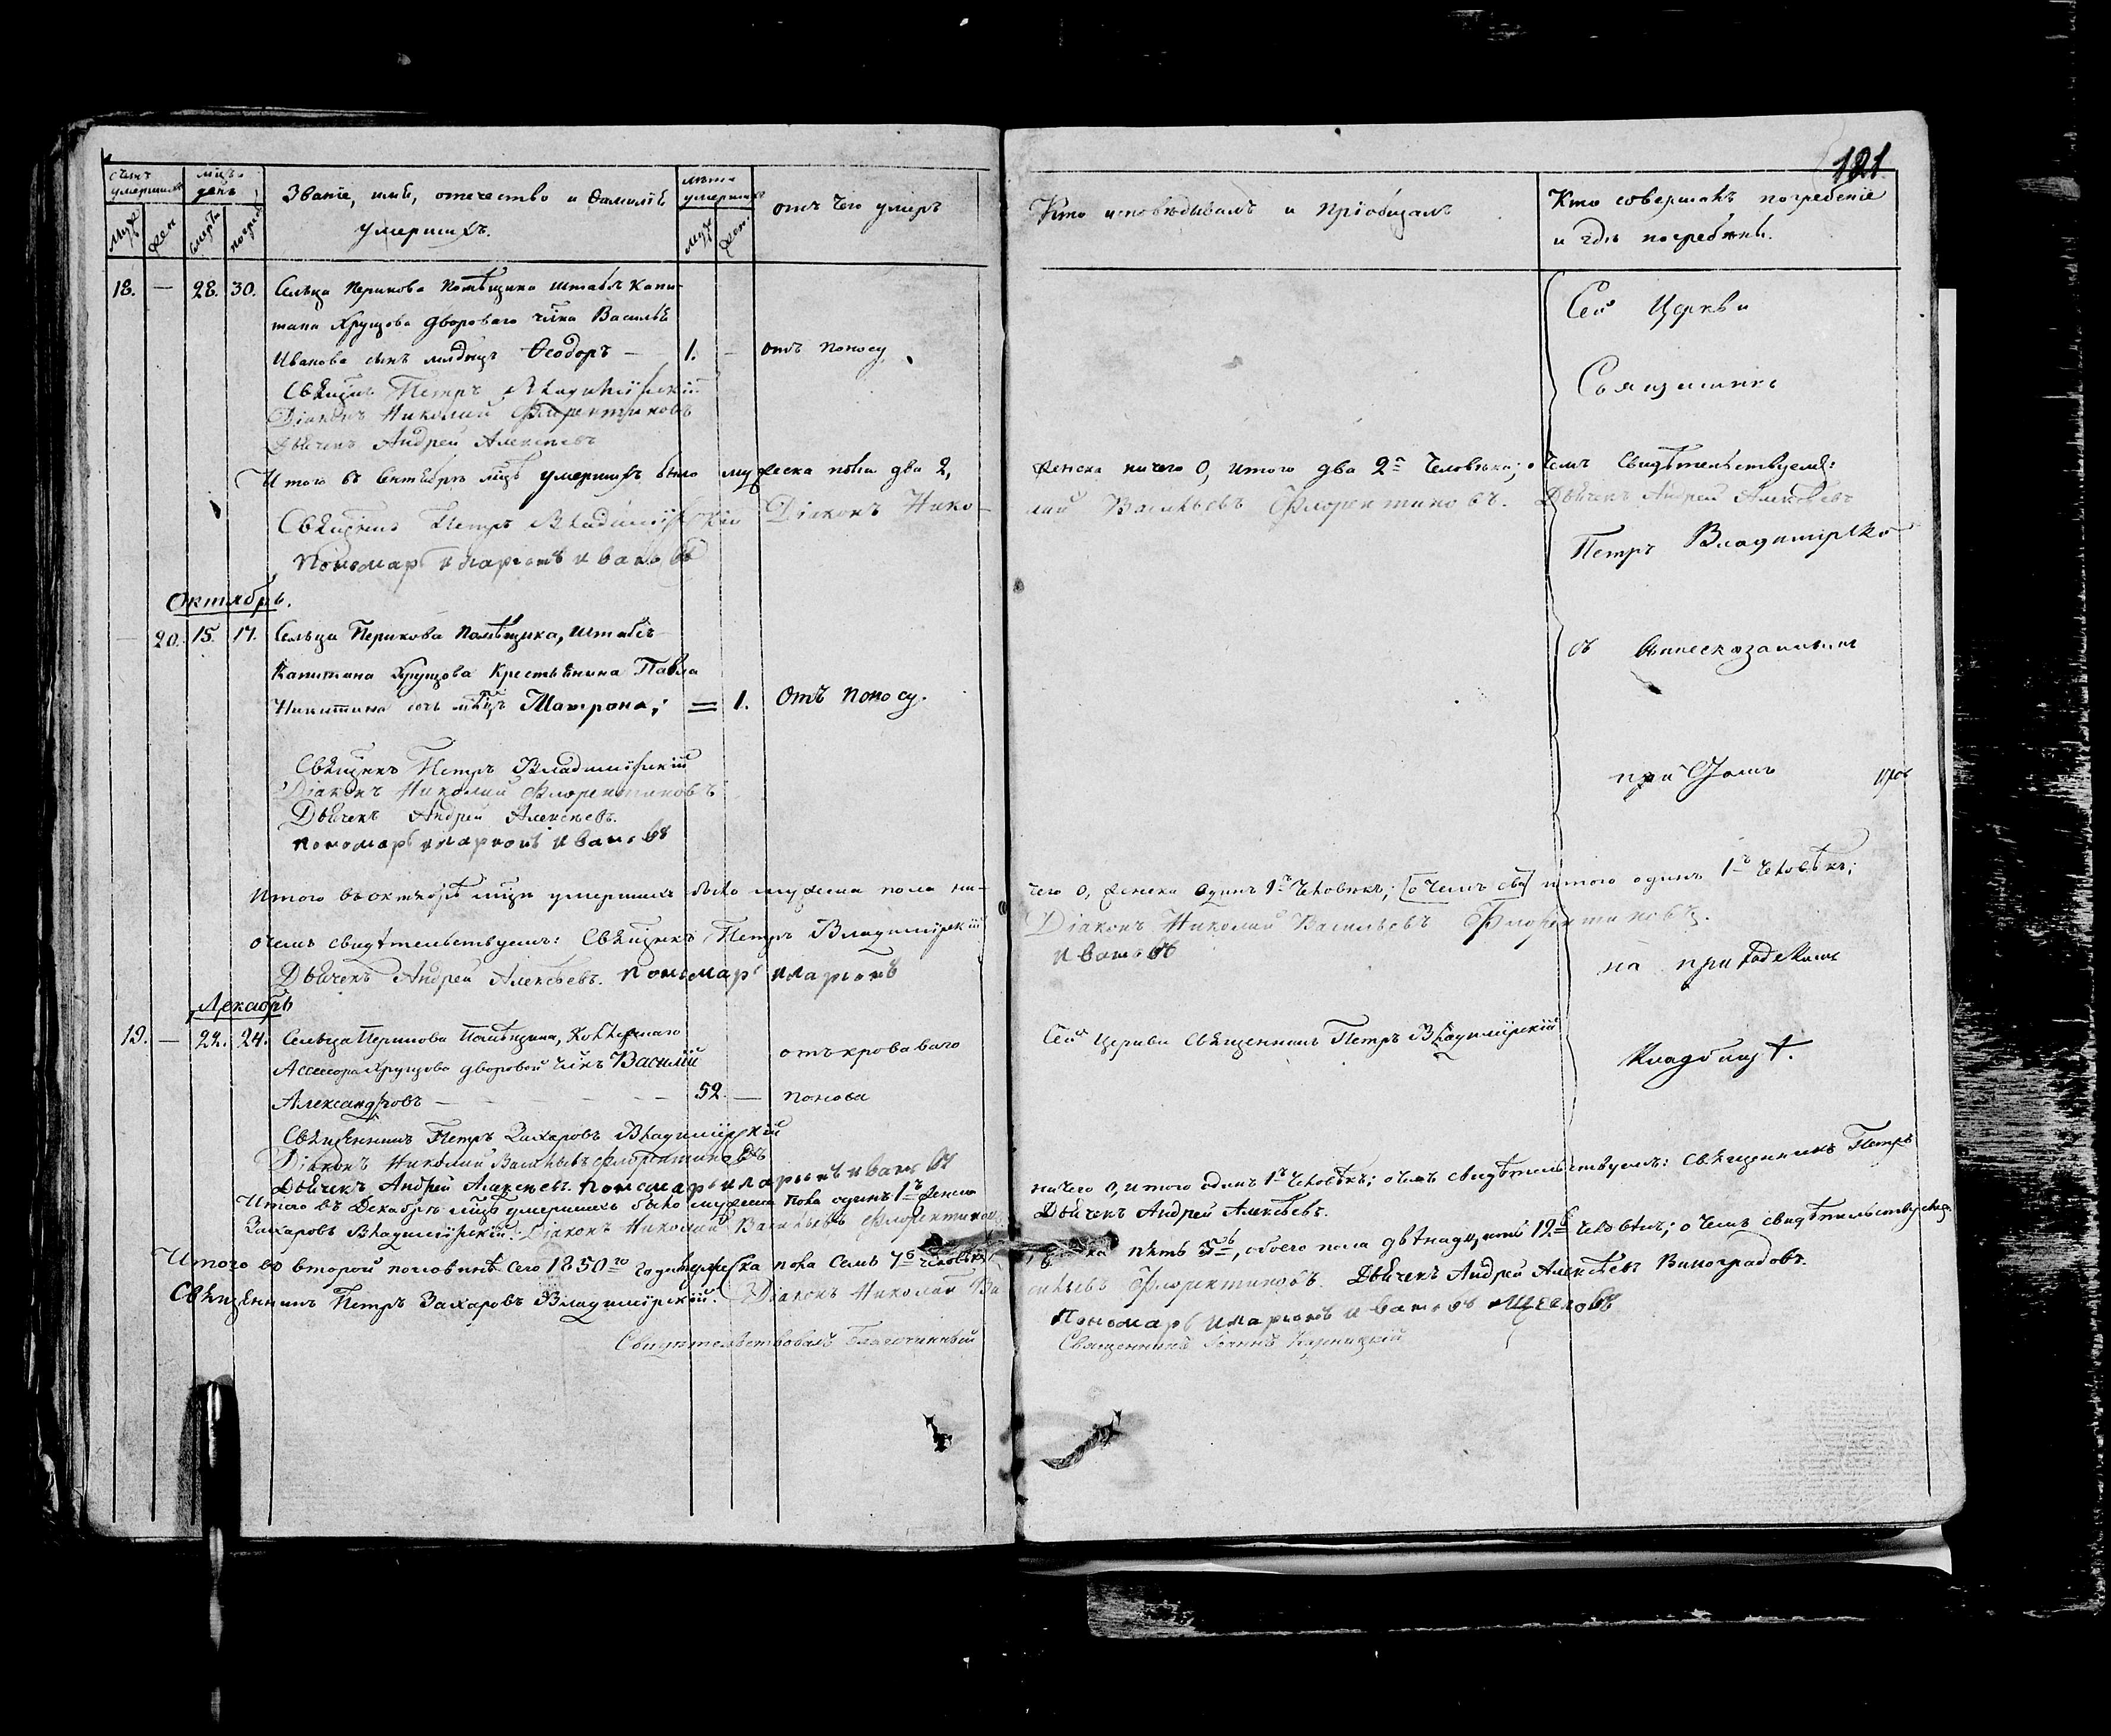 121
Счетъ умершихъ
Мцъ и день
Званіе, имя, отечество и Фамилія умершихъ.
Лѣта умершихъ
отъ чего умеръ
Кто исповѣдывалъ и пріобщалъ
Кто совершалъ погребеніе и гдѣ погребены.
Муж
Жен
смерти
погреб
Муж
Жен
18. — 28. 30. Сельца Перикова Помѣщика штабсъ Капи-
тана Хрущова двороваго чѣка Василья
Иванова сынъ младнцъ Ѳеодоръ — 1. — отъ поносу
Свящнкъ Петръ Владимірскій
Діаконъ Николай Флорентиновъ
Дьячекъ Андрей Алексѣевъ
Итого въ Сентябрѣ мцѣ умершихъ было мужеска пола два 2, женска ничего 0, итого два 2 человѣка; о чемъ свидѣтельствуемъ:
Свящнкъ Петръ Владимірскій Діаконъ Нико-лай Васильевъ Флорентиновъ. Дьячекъ Андрей Алексѣевъ
Пономарь Иларіонъ Ивановъ
Октябрь.
20. 15. 17. Сельца Перикова Помѣщика, штабсъ
Капитана Хрущова Крестьянина Павла
Никитина дочь мцъ Матрона; = 1. Отъ поносу.
Свящнкъ Петръ Владимірскій
Діаконъ Николай Флорентиновъ
Дьячекъ Андрей Алексѣевъ.
Пономарь Иларіонъ Ивановъ
Итого въ октябрѣ мцѣ умершихъ было мужеска пола ни-чего 0, женска одинъ 1 человѣкъ; [о чемъ сви] итого одинъ 1 человѣкъ;
о чемъ свидѣтельствуемъ: Свящнкъ Петръ Владимірскій Діаконъ Николай Васильевъ Флорентиновъ.
Дьячекъ Андрей Алексѣевъ. Пономарь Иларіонъ Ивановъ
Декабрь
19. — 22. 24. Сельца Перикова Помѣщика, Коллежскаго
Ассесора Хрущова дворовой чѣкъ Василій
Александровъ — 52. — отъ кроваваго поноса
Сей Церкви Священникъ Петръ Владимірскій
Священникъ Петръ Захаровъ Владимірскій
Діаконъ Николай Васильевъ Флорентиновъ
Дьячекъ Андрей Алексѣевъ. Пономарь Иларіонъ Ивановъ
Итого въ Декабрѣ мцѣ умершихъ было мужеска пола одинъ 1 женска ничего 0, итого одинъ 1 человѣкъ; о чемъ свидѣтельствуемъ: Священникъ Петръ
Захаровъ Владимірскій. Діаконъ Николай Васильевъ Флорентиновъ Дьячекъ Андрей Алексѣевъ.
Итого во второй половинѣ сего 1850 года мужеска пола семь 7 человѣкъ, женска пять 5, обоего пола двѣнадцать 12 человѣкъ; о чемъ свидѣтельствуемъ
Священникъ Петръ Захаровъ Владимірскій. Діаконъ Николай Васильевъ Флорентиновъ. Дьячекъ Андрей Алексѣевъ Виноградовъ.
Пономарь Иларіонъ Ивановъ
Свидѣтельствовалъ Благочинный Священникъ Іоаннъ
Сей Церкви
Священникъ
Петръ Владимірскій
съ вышесказаннымъ
при
на приходскомъ
Кладбищѣ.